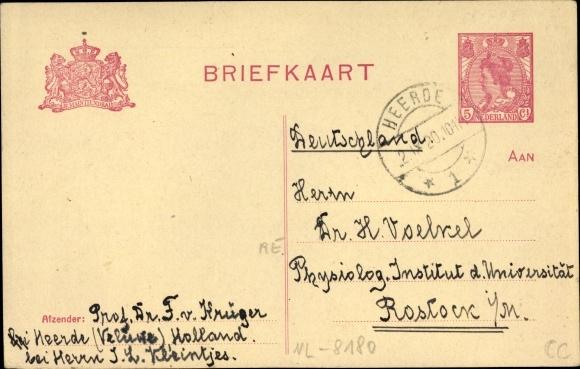 BRIEFKAART
5 Ct
NEDERLAND
HEERDE
1
AAN
Deutschland
Herrn
Dr. H. Voelkel
Physiolog. Institut d. Universität
Rostock i/M.
AE
Afzender: Prof. Dr. F. v. Krüger
bei Heerde (Veluwe) Holland.
bei Herrn J. L. Kleintjes.
NL-8180
CC